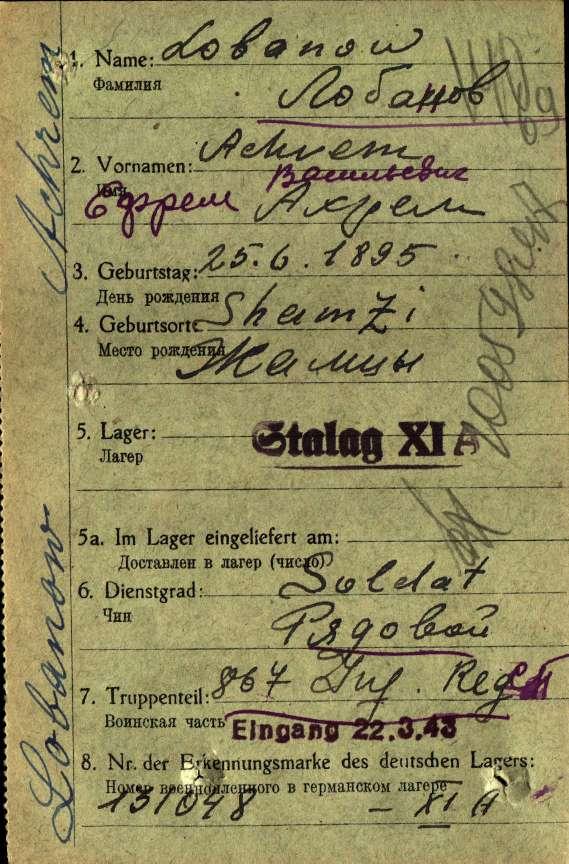 1. Name: Lobanow
Фамилия Лобанов
2. Vornamen: Achrem
Васильевич
Имя
Ефрем Ахрем
3. Geburtstag: 25.6.1895
День рождения
4. Geburtsorte Shamzi
Место рождения Жамцы
5. Lager: Stalag XI A
Лагер
5a. Im Lager eingeliefert am:
Доставлен в лагер (число)
6. Dienstgrad: Soldat
Чин Рядовой
7. Truppenteil: 867 Inf. Reg.
Воинская часть Eingang 22.3.43
8. Nr. der Erkennungsmarke des deutschen Lagers:
Номер военнопленного в германском лагере
131048 – XI A
Lobanow Achrem